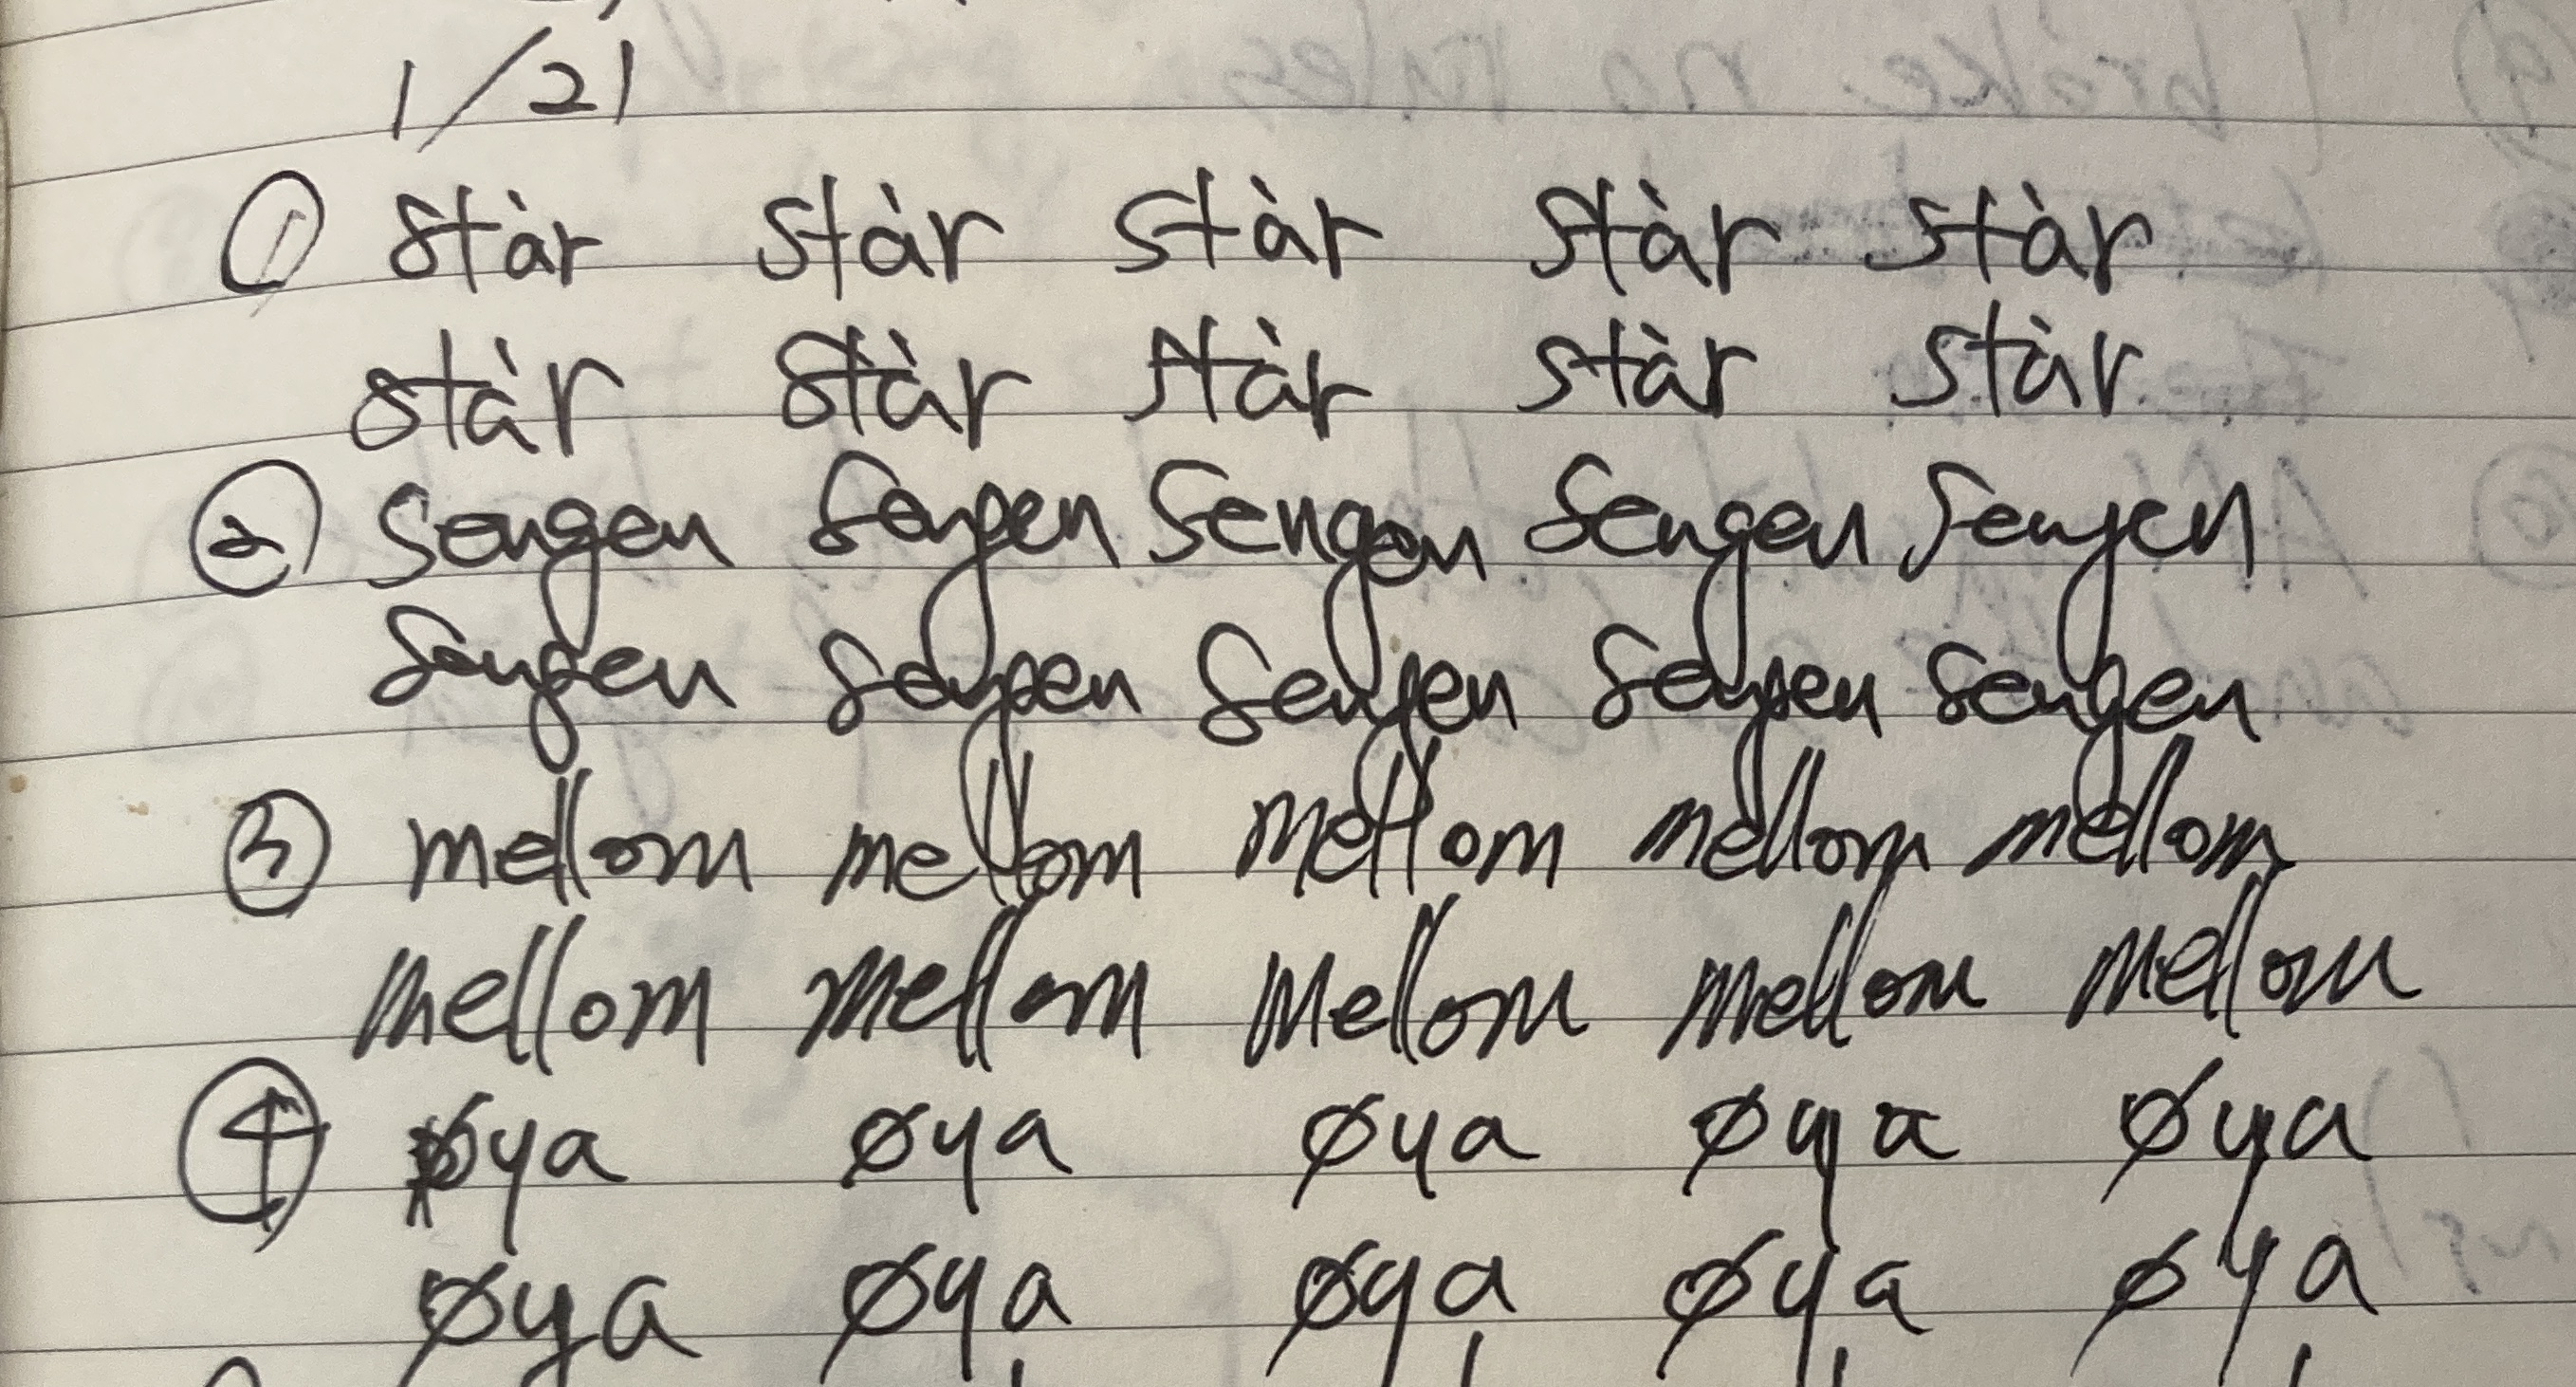 1/21
① stàr stàr stàr stàr stàr
stàr stàr stàr stàr stàr
② sengen sengen sengen sengen sengen
sengen sengen sengen sengen sengen
③ mellom mellom mellom mellom mellom
mellom mellom mellom mellom mellom
④ øya øya øya øya øya
øya øya øya øya øya